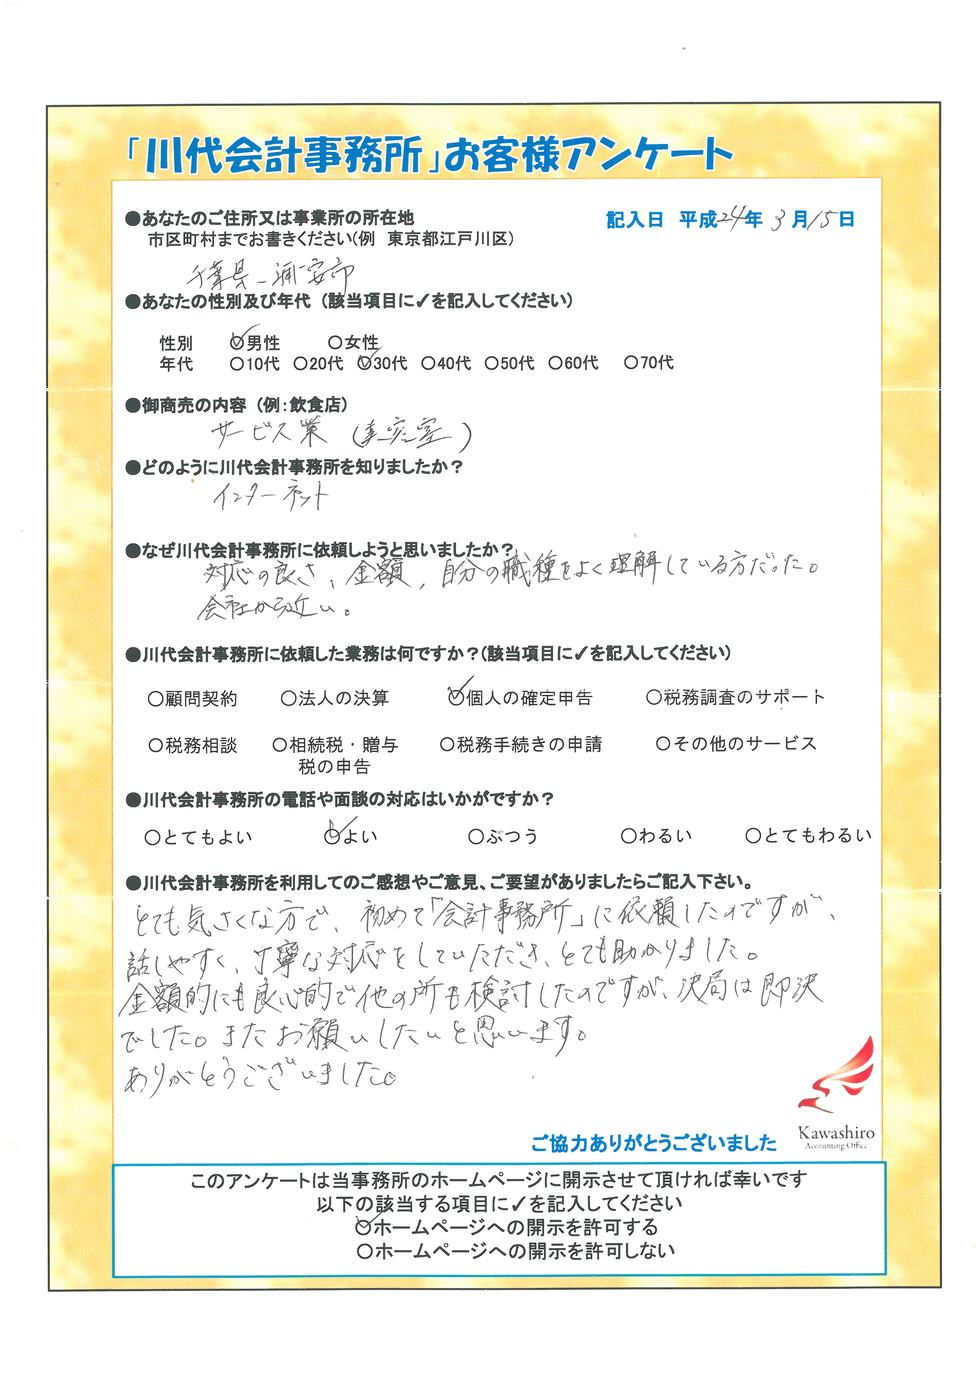 「川代会計事務所」お客様アンケート
●あなたのご住所又は事業所の所在地
記入日 平成24年3月15日
市区町村までお書きください(例 東京都江戸川区)
千葉県 浦安市
●あなたの性別及び年代 (該当項目に✓を記入してください)
性別 ○男性 ○女性
年代 ○10代 ○20代 ○30代 ○40代 ○50代 ○60代 ○70代
●御商売の内容 (例:飲食店)
サービス業 (美容室)
●どのように川代会計事務所を知りましたか?
インターネット
●なぜ川代会計事務所に依頼しようと思いましたか?
対応の良さ、金額、自分の職種をよく理解している方だった。
会社から近い。
●川代会計事務所に依頼した業務は何ですか?(該当項目に✓を記入してください)
○顧問契約 ○法人の決算 ○個人の確定申告 ○税務調査のサポート
○税務相談 ○相続税・贈与 ○税務手続きの申請 ○その他のサービス
税の申告
●川代会計事務所の電話や面談の対応はいかがですか?
○とてもよい ○よい ○ぶつう ○わるい ○とてもわるい
●川代会計事務所を利用してのご感想やご意見、ご要望がありましたらご記入下さい。
とても気さくな方で、初めて「会計事務所」に依頼したのですが、
話しやすく、丁寧な対応をしていただき、とても助かりました。
金額的にも良心的で他の所も検討したのですが、決局は即決
でした。またお願いしたいと思います。
ありがとうございました。
Kawashiro
Accounting Office
ご協力ありがとうございました
このアンケートは当事務所のホームページに開示させて頂ければ幸いです
以下の該当する項目に✓を記入してください
○ホームページへの開示を許可する
○ホームページへの開示を許可しない